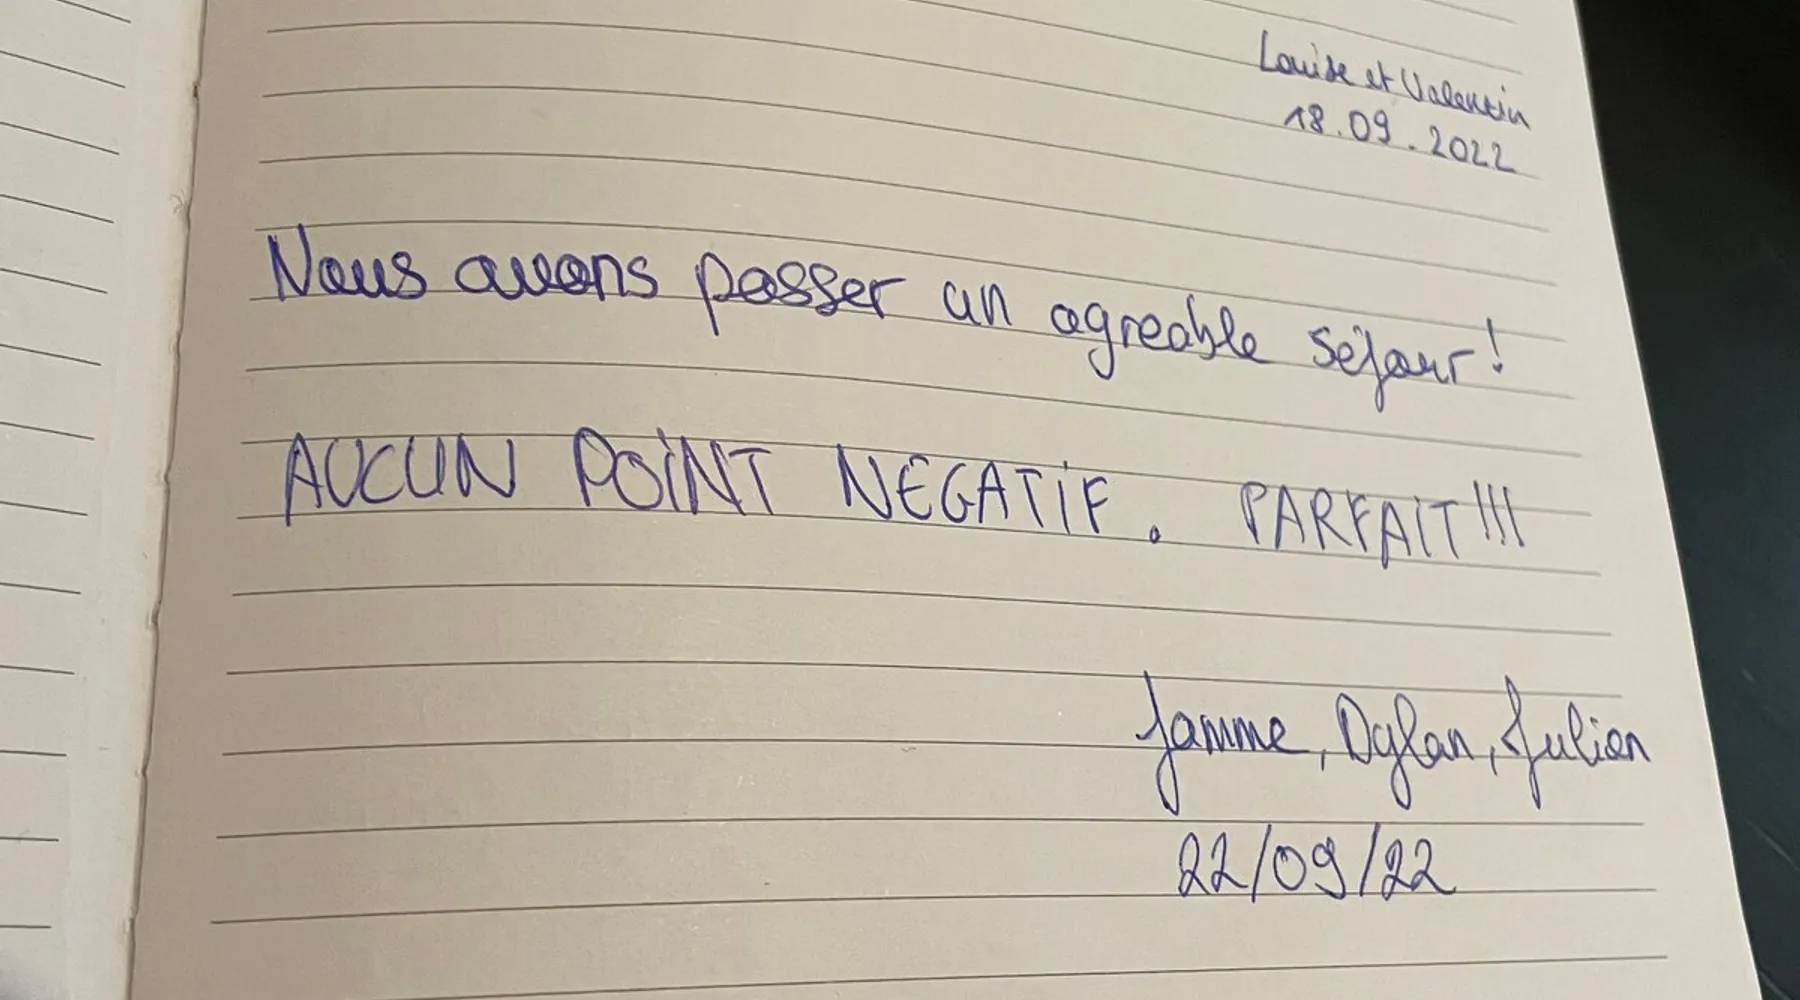 Louise et Valentin
18.09.2022
Nous avons passer un agreable séjour!
AUCUN POINT NEGATIF. PARFAIT!!!
Jamme, Dylan, Julien
22/09/22